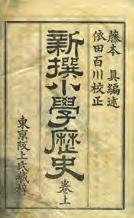 藤本真編述
依田百川校正
新撰小學歷史
卷上
東京阪上氏藏梓